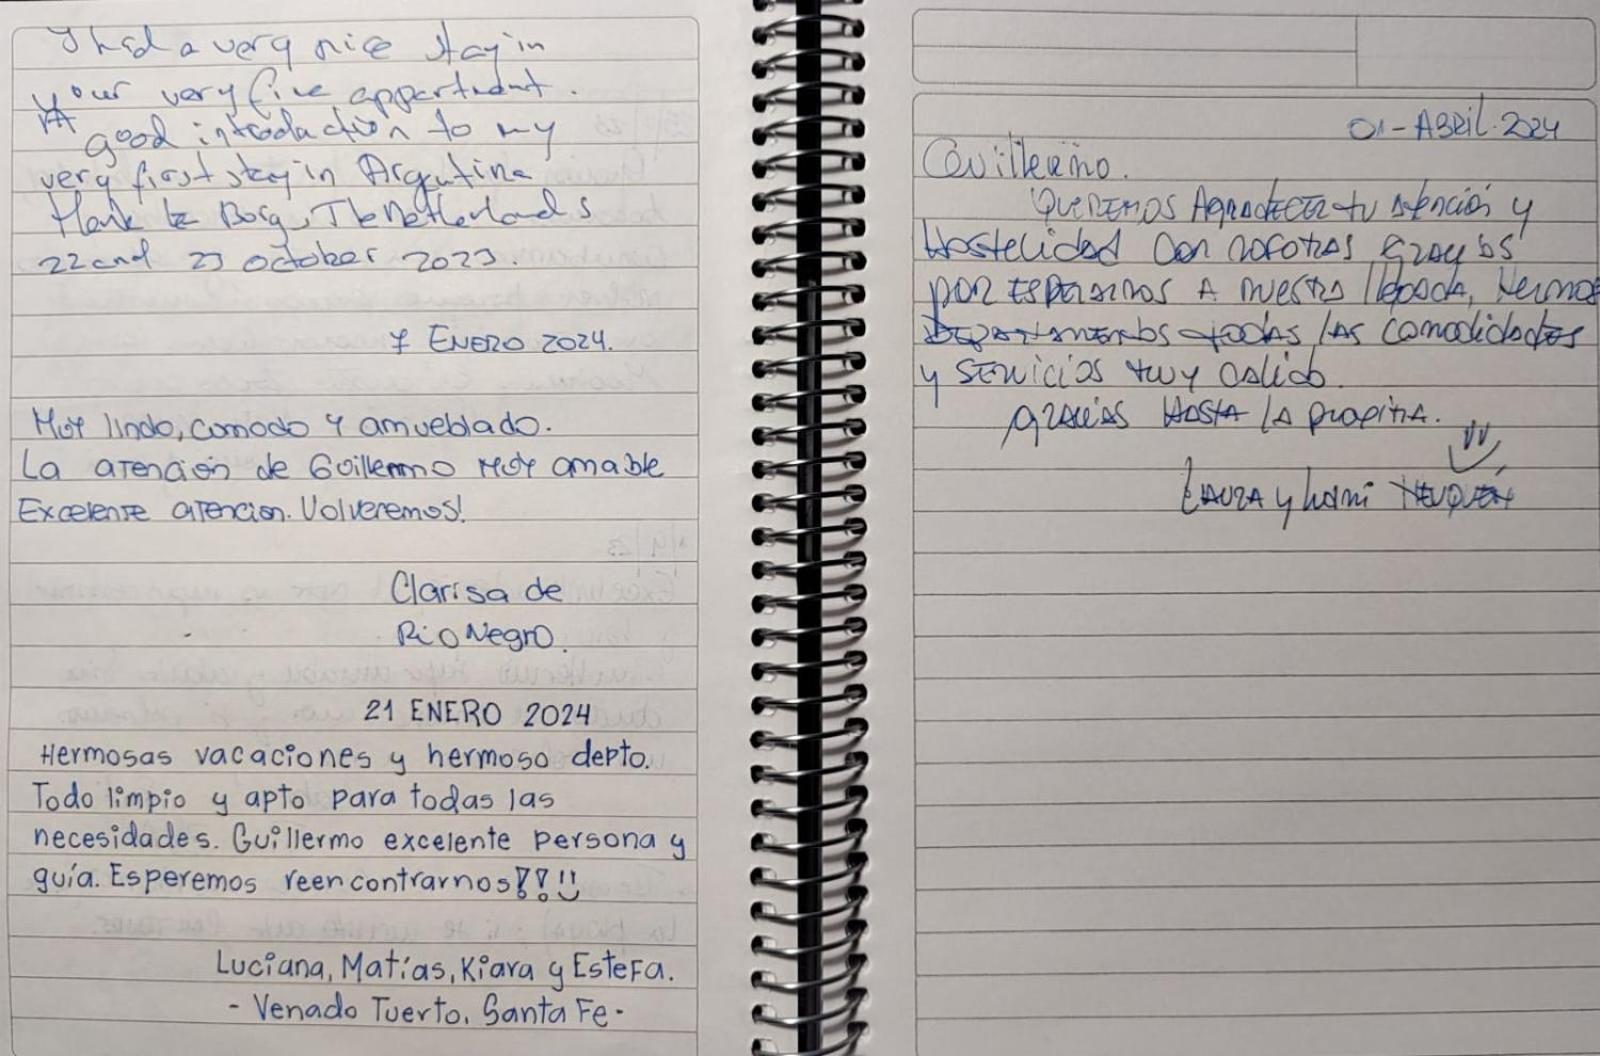 I had a very nice stay in
your very fine appartment.
A good introduction to my
very first stay in Argentina
Henk te Borg, The Netherlands
22 and 23 october 2023.
7 ENERO 2024.
Muy lindo, comodo y amueblado.
La atencion de Guillermo muy amable
Excelente atencion. Volveremos!
Clarisa de
Rio Negro.
21 ENERO 2024
Hermosas vacaciones y hermoso depto.
Todo limpio y apto para todas las
necesidades. Guillermo excelente persona y
guía. Esperemos reencontrarnos!!!!
Luciana, Matías, Kiara y Estefa.
- Venado Tuerto, Santa Fe -
01 - ABRIL. 2024
Guillermo.
Queremos Agradecer tu atención y
Hostelidad con nosotras gracias
por esperarnos a nuestra llegada, Hermoso
Departamento todas las comodidades
y servicios muy calido.
gracias Hasta la proxima.
Laura y NEUQUÉN